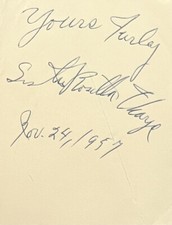 Yours Truley
Sister Rosetta Tharpe
Nov. 24, 1957